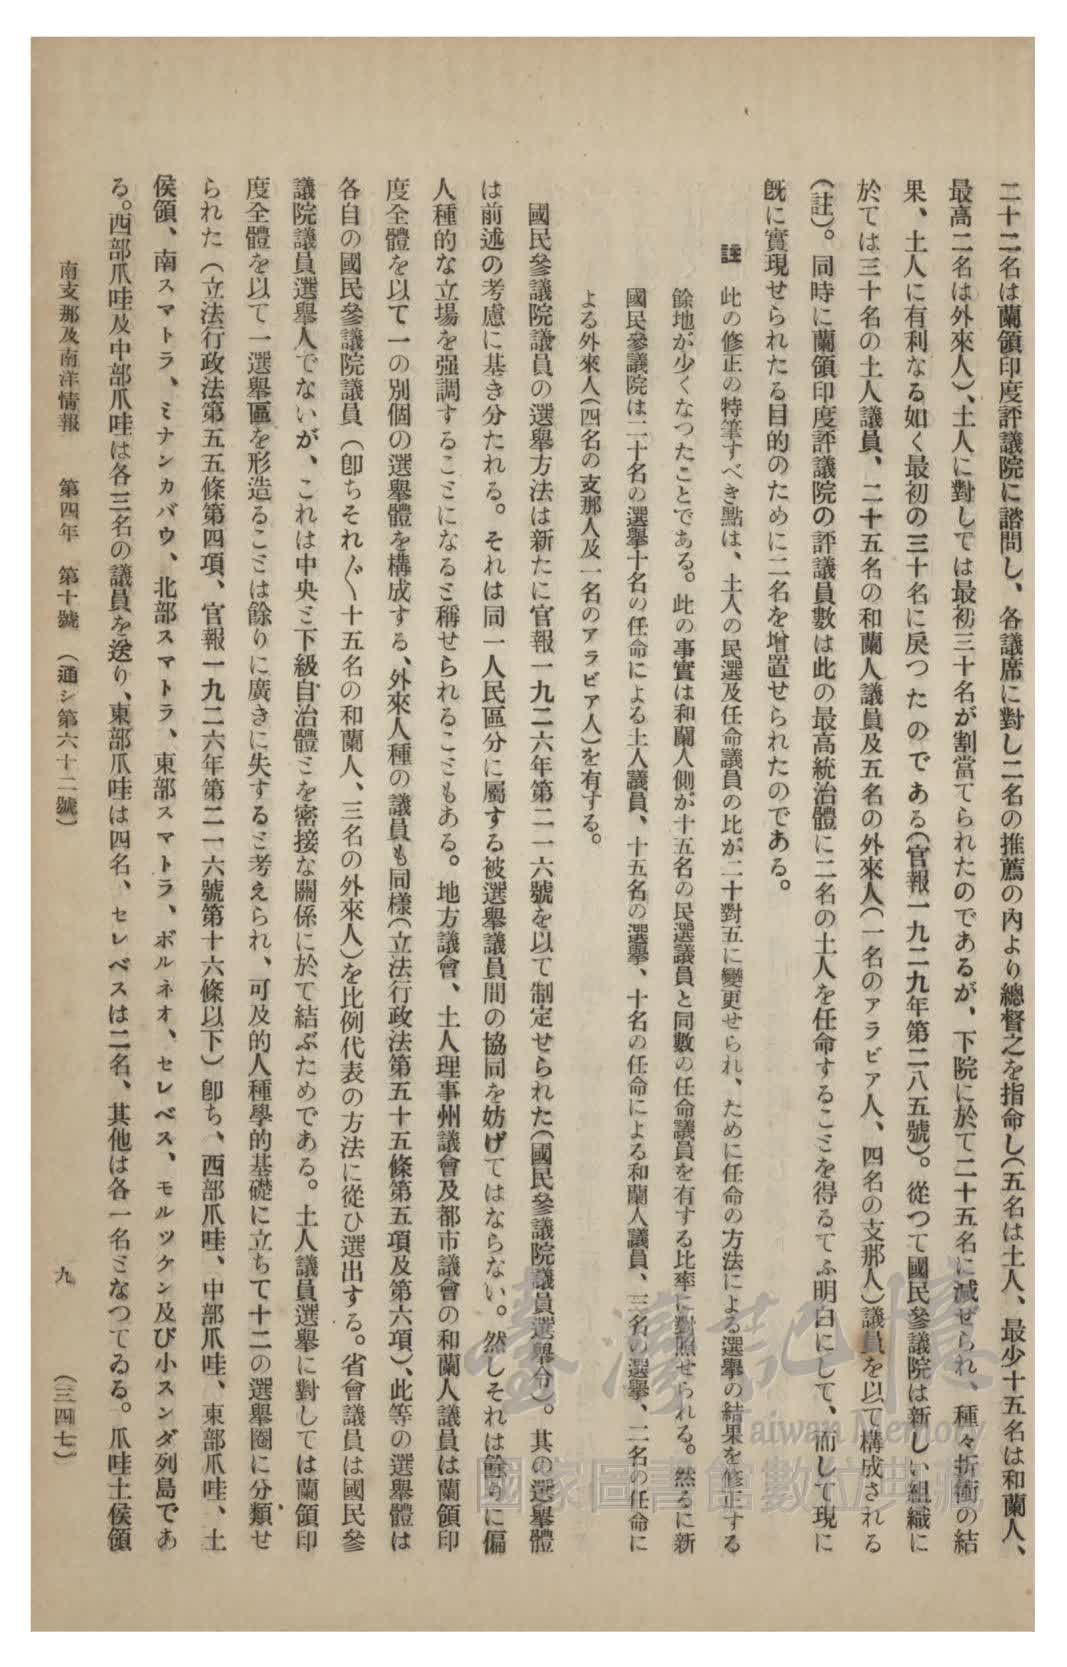 二十二名は蘭領印度評議院に諮問し、各議席に對し二名の推薦の內より總督之を指命し(五名は土人、最少十五名は和蘭人、
最高二名は外來人)、土人に對しては最初三十名が割當てられたのであるが、下院に於て二十五名に減ぜられ、種々折衝の結
果、土人に有利なる如く最初の三十名に戾つたのである(官報一九二九年第二八五號)。從つて國民參議院は新しい組織に
於ては三十名の土人議員、二十五名の和蘭人議員及五名の外來人(一名のアラビア人、四名の支那人)議員を以て構成される
(註)。同時に蘭領印度評議院の評議員數は此の最高統治體に二名の土人を任命するこミを得るてふ明白にして、而して現に
旣に實現せられたる目的のために二名を增置せられたのである。
註 此の修正の特筆すべき點は、土人の民選及任命議員の比が二十對五に變更せられ、ために任命の方法による選擧の結果を修正する
餘地が少くなつたことである。此の事實は和蘭人側が十五名の民選議員と同數の任命議員を有する比率に對照せられる。然るに新
國民參議院は二十名の選擧十名の任命による土人議員、十五名の選擧、十名の任命による和蘭人議員、三名の選擧、二名の任命に
よる外來人(四名の支那人及一名のアラビア人)を有する。
國民參議院議員の選擧方法は新たに官報一九二六年第二一六號を以て制定せられた(國民參議院議員選擧令)。其の選擧體
は前述の考慮に基き分たれる。それは同一人民區分に屬する被選擧議員間の協同を妨げてはならない。然しそれは餘りに偏
人種的な立場を强調するこミになるミ稱せられるこミもある。地方議會、土人理事州議會及都市議會の和蘭人議員は蘭領印
度全體を以て一の別個の選擧體を構成する、外來人種の議員も同樣(立法行政法第五十五條第五項及第六項)、此等の選擧體は
各自の國民參議院議員(卽ちそれ〲十五名の和蘭人、三名の外來人)を比例代表の方法に從ひ選出する。省會議員は國民參
議院議員選擧人でないが、これは中央ミ下級自治體ミを密接な關係に於て結ぶためである。土人議員選擧に對しては蘭領印
度全體を以て一選擧區を形造るこミは餘りに廣きに失するミ考えられ、可及的人種學的基礎に立ちて十二の選擧圈に分類せ
られた(立法行政法第五五條第四項、官報一九二六年第二一六號第十六條以下)卽ち、西部爪哇、中部爪哇、東部爪哇、土
侯領、南スマトラ、ミナンカバウ、北部スマトラ、東部スマトラ、ボルネオ、セレベス、モルツケン及び小スンダ列島であ
る。西部爪哇及中部爪哇は各三名の議員を送り、東部爪哇は四名、セレベスは二名、其他は各一名ミなつてゐる。爪哇土侯領
南支那及南洋情報 第四年 第十號 (通シ第六十二號) 九 (三四七)
臺灣記憶
Taiwan Memory
國家圖書館數位典藏